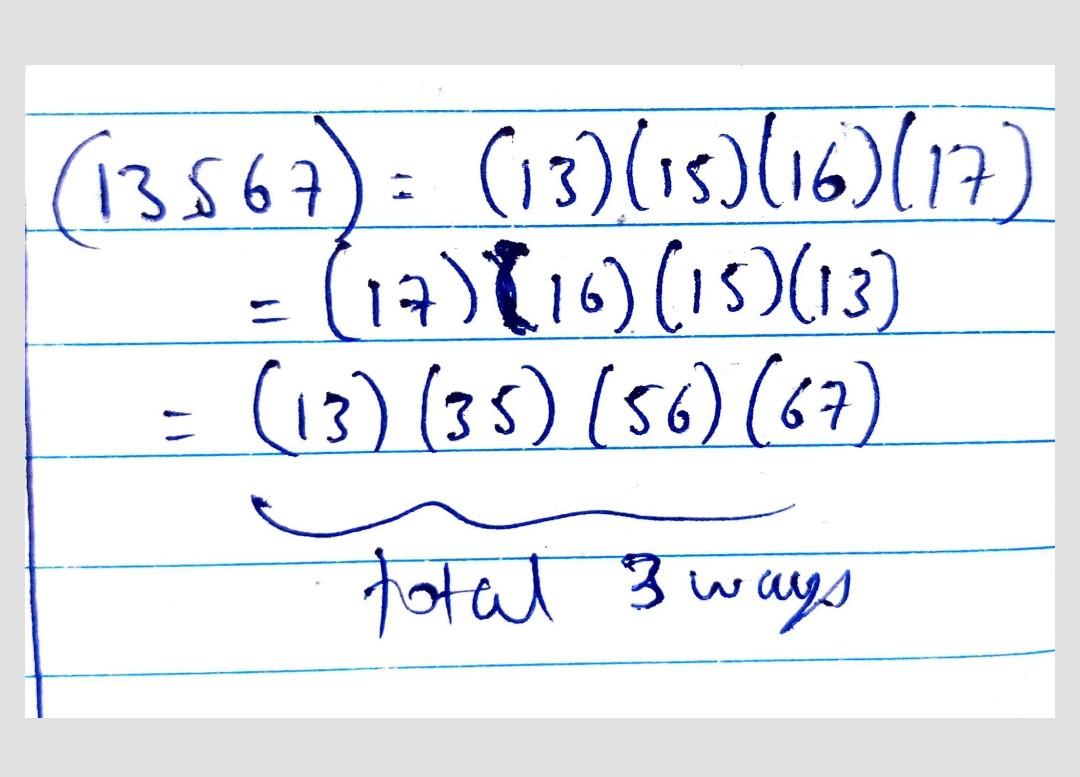 (13567) = (13)(15)(16)(17)
= (17)(16)(15)(13)
= (13)(35)(56)(67)
total 3 ways